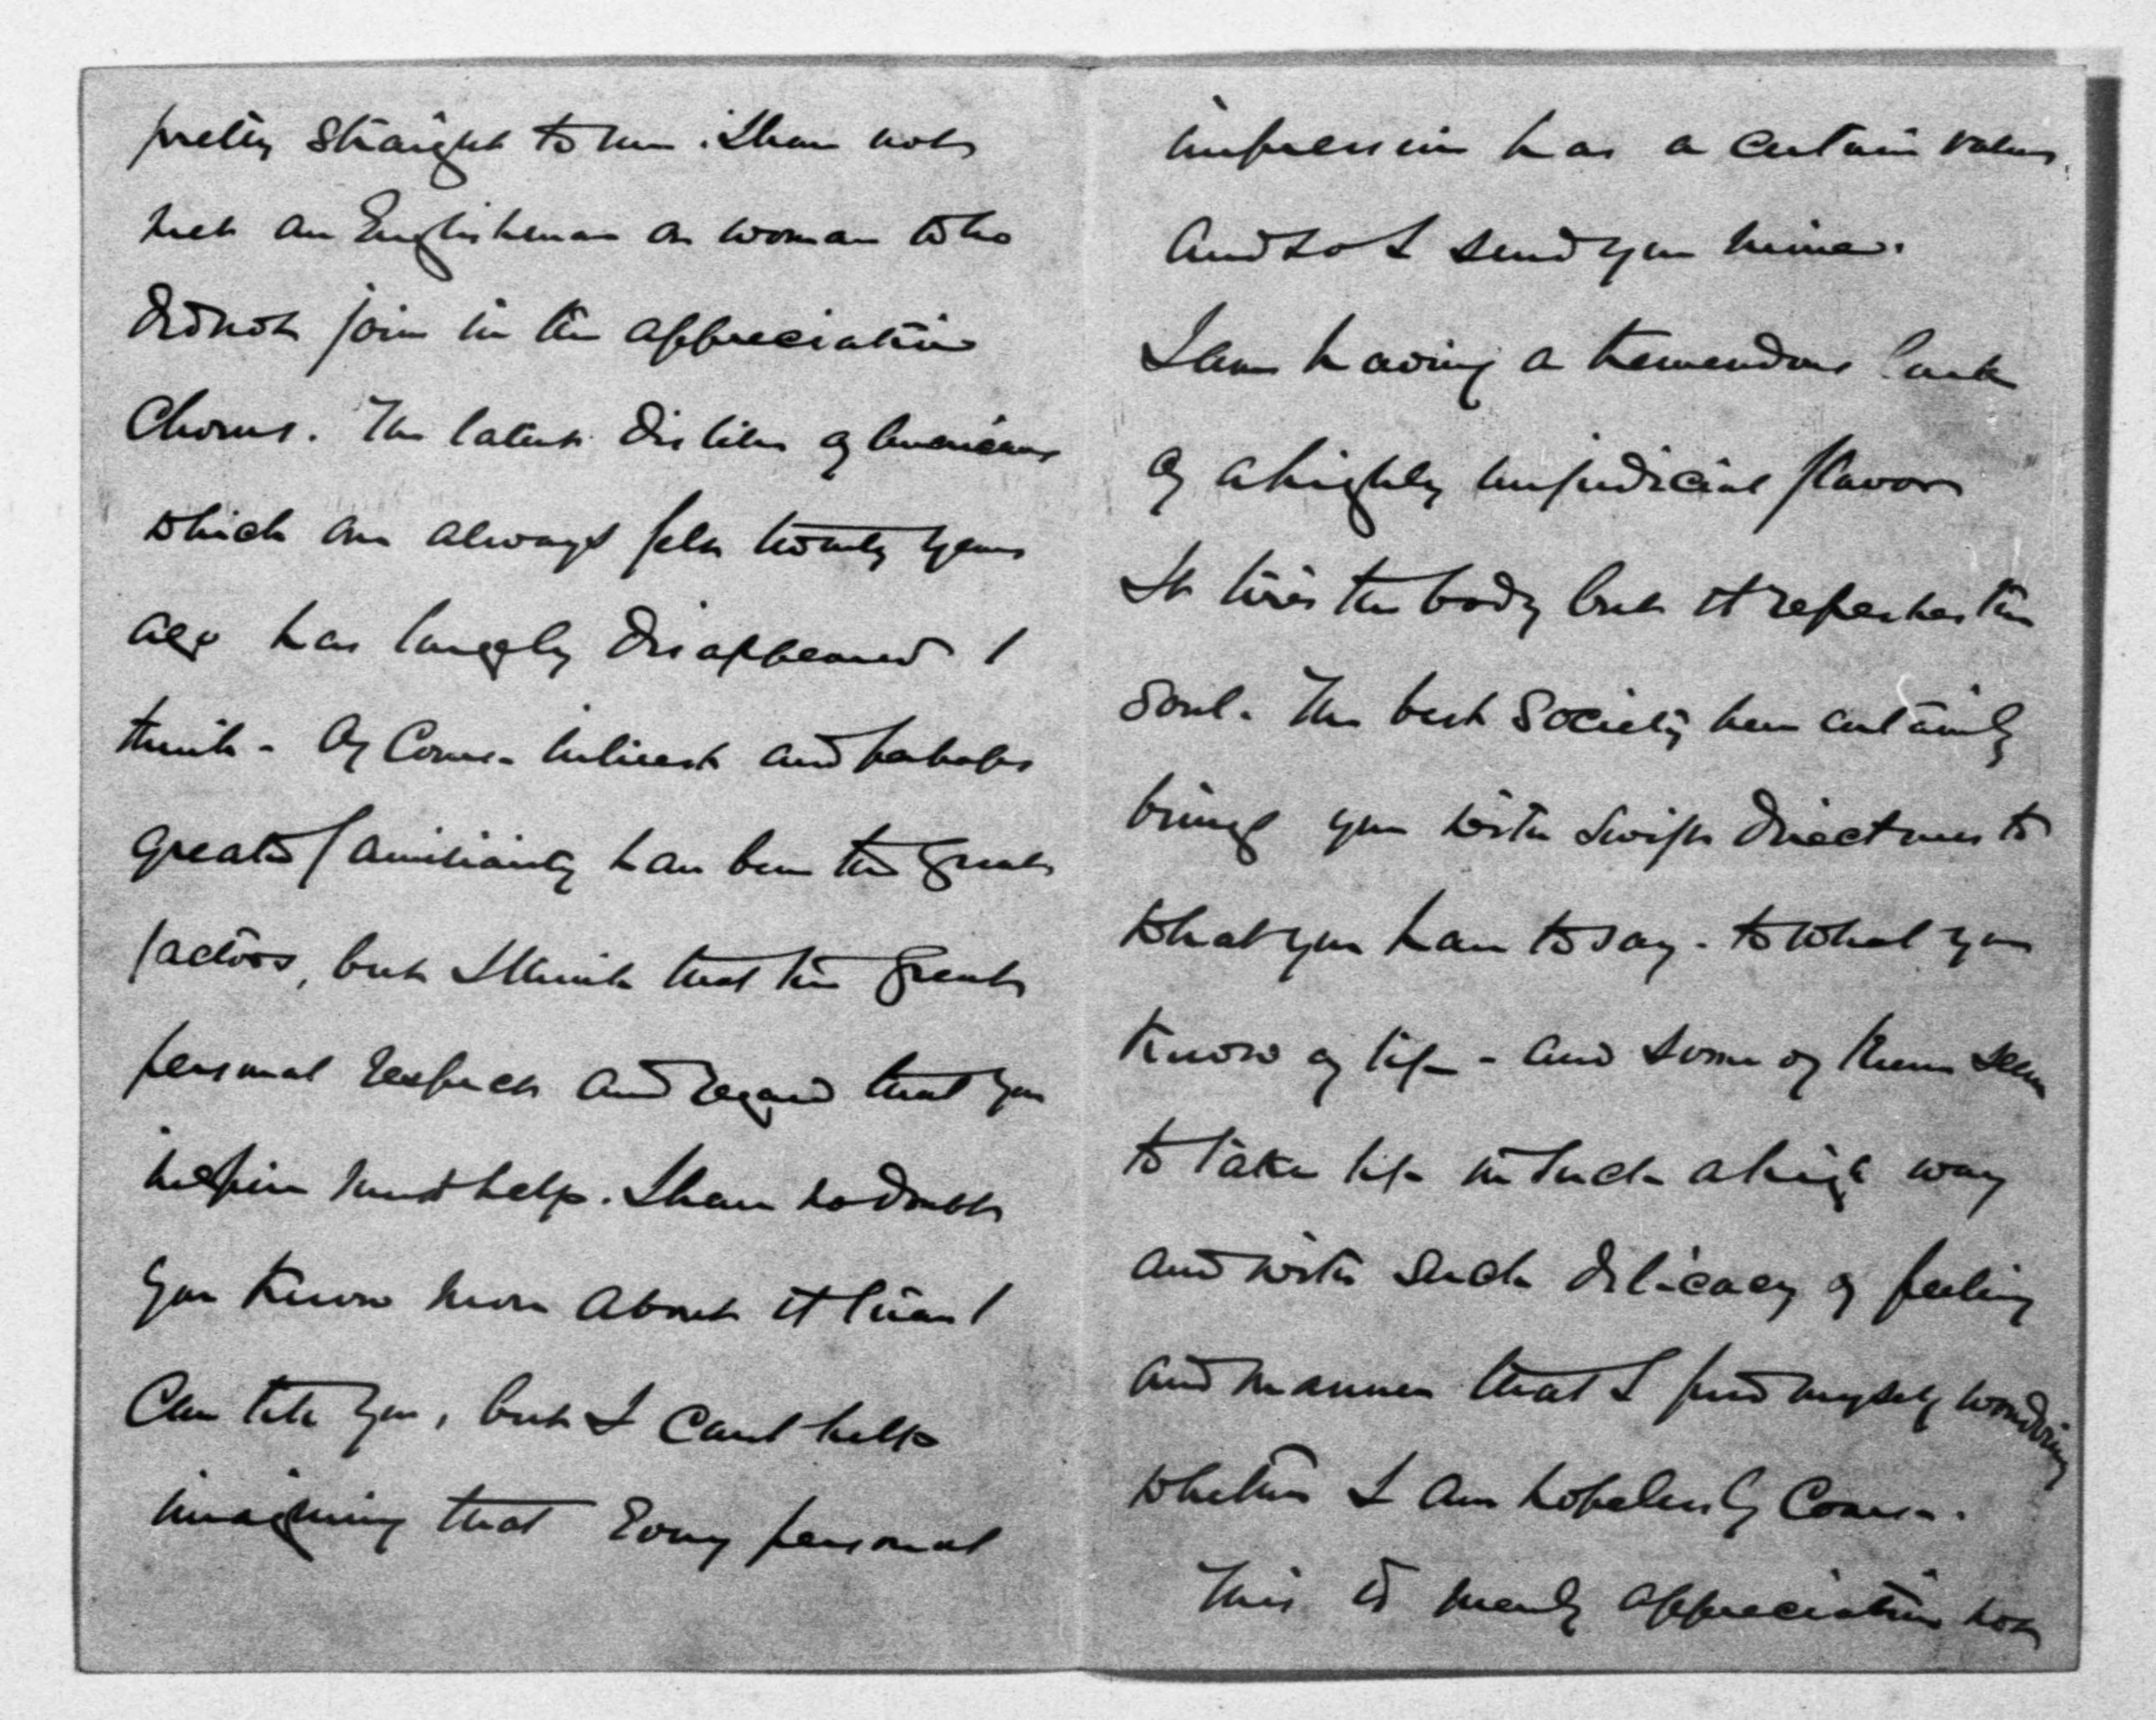 pretty straight to me. I have not
met an Englishman or woman who
did not join in the appreciative
chorus. The latent dislike of Americans
which one always felt twenty years
ago has largely disappeared I
think - Of course interest and perhaps
greater familiarity have been the great
factors, but I think that the great
personal respect and regard that you
inspire must help. I have no doubt
you know more about it than I
can tell you, but I cant help
imagining that every personal
impression has a certain value,
and so I send you mine.
I am having a tremendous lark
of a highly unjudicial flavor
It tires the body but it refreshes the
soul. The best society here certainly
brings you with swift directness to
what you have to say - to what you
know of life - and some of them seem
to take life in such a high way
and with such delicacy of feeling
and manner that I find myself wondering
whether I am hopelessly coarse.
This is merely appreciation not